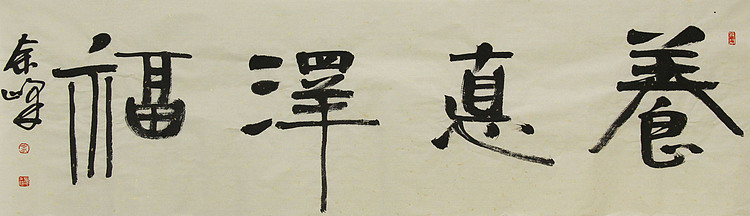 養悳澤福
余峰